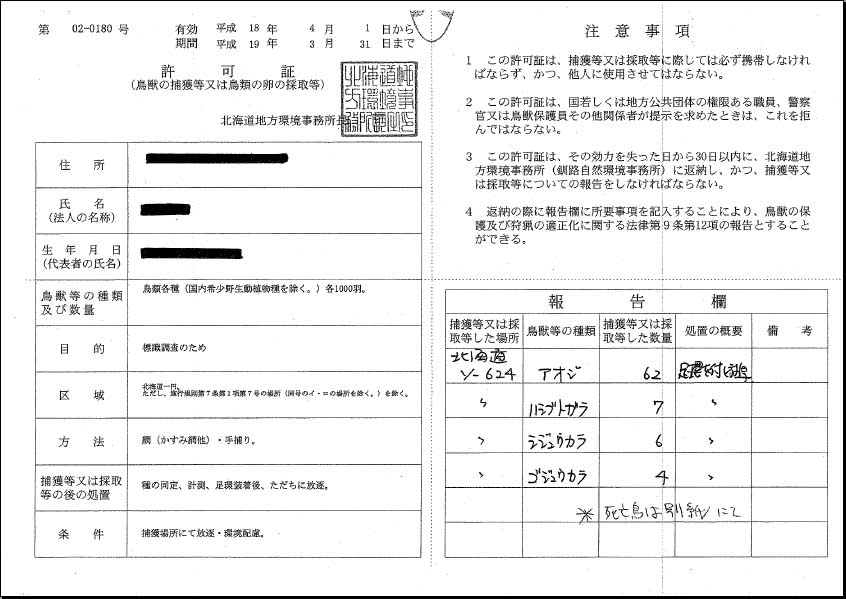 第 02-0180 号 有効期間 平成 18 年 4 月 1 日から
平成 19 年 3 月 31 日まで
許可証
(鳥獣の捕獲等又は鳥類の卵の採取等)
北海道地方環境事務所長
住所
氏名
(法人の名称)
生年月日
(代表者の氏名)
鳥獣等の種類及び数量
鳥類各種(国内希少野生動植物種を除く。)各1000羽。
目的
標識調査のため
区域
北海道一円。
ただし、施行規則第7条第1項第7号の場所(同号のイ・ロの場所を除く。)を除く。
方法
網(かすみ網他)・手捕り。
捕獲等又は採取等の後の処置
種の同定、計測、足環装着後、ただちに放逐。
条件
捕獲場所にて放逐・環境配慮。
注意事項
1 この許可証は、捕獲等又は採取等に際しては必ず携帯しなけれ
ばならず、かつ、他人に使用させてはならない。
2 この許可証は、国若しくは地方公共団体の権限ある職員、警察
官又は鳥獣保護員その他関係者が提示を求めたときは、これを拒
んではならない。
3 この許可証は、その効力を失った日から30日以内に、北海道地
方環境事務所(釧路自然環境事務所)に返納し、かつ、捕獲等又
は採取等についての報告をしなければならない。
4 返納の際に報告欄に所要事項を記入することにより、鳥獣の保
護及び狩猟の適正化に関する法律第9条第12項の報告とすること
ができる。
報告欄
捕獲等又は採取等した場所 鳥獣等の種類 捕獲等又は採取等した数量 処置の概要 備考
北海道
V-624 アオジ 62 足環付放鳥
〃 ハシブトガラ 7 〃
〃 シジュウカラ 6 〃
〃 ゴジュウカラ 4 〃
※ 死亡鳥は別紙にて